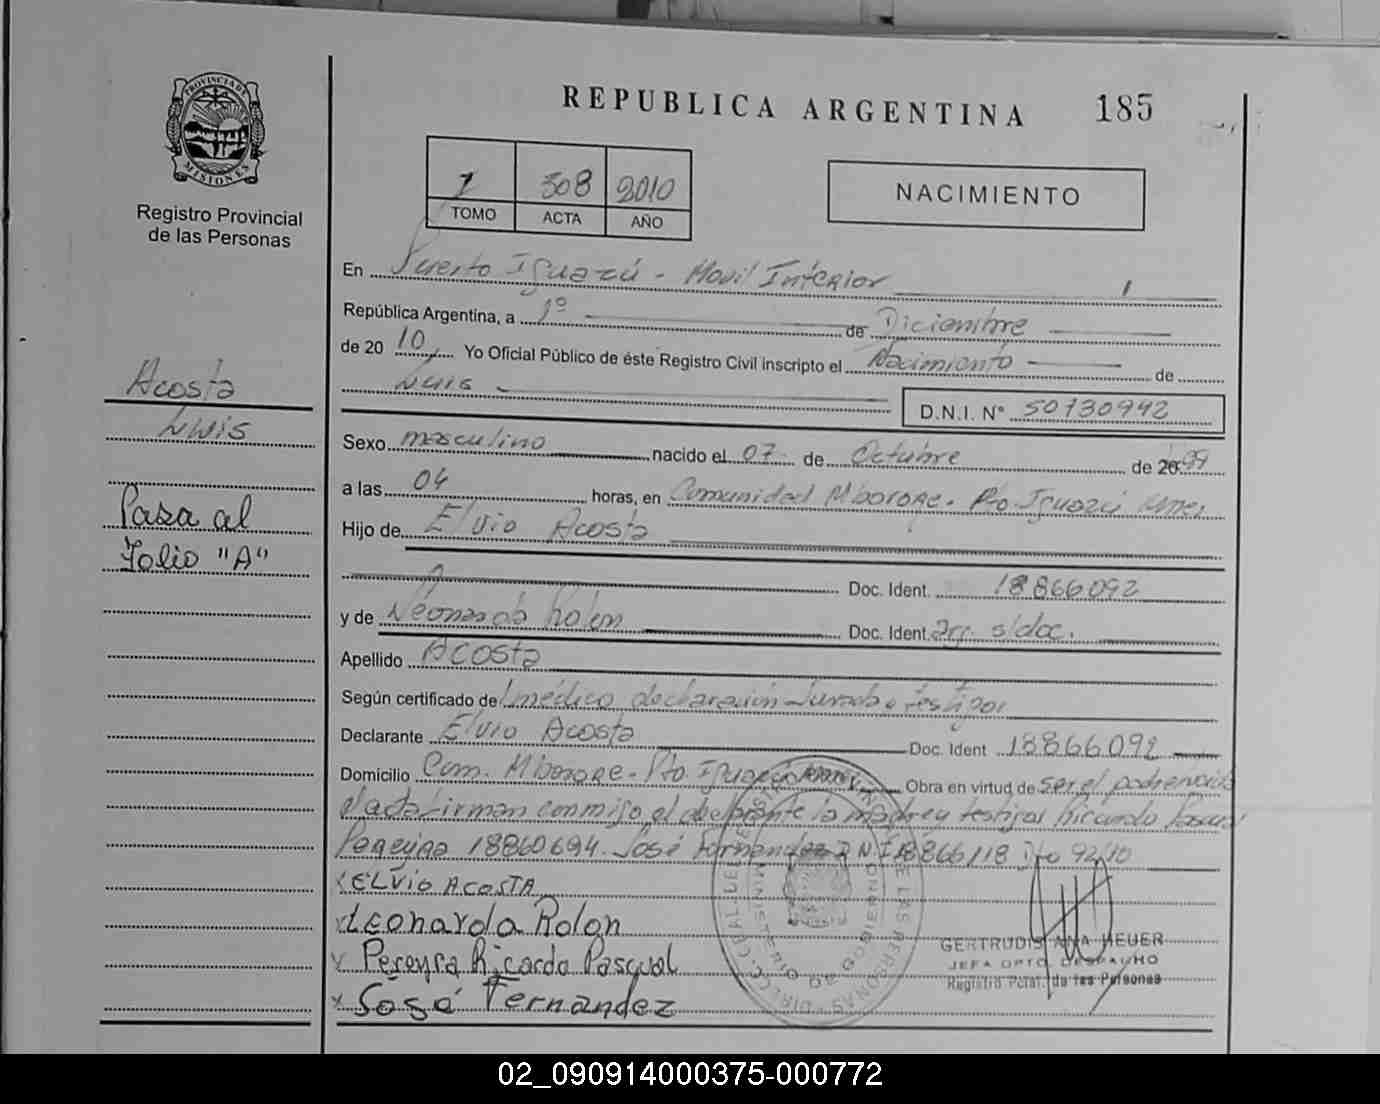 PROVINCIA DE
MISIONES
Registro Provincial
de las Personas
REPUBLICA ARGENTINA 185
1 308 2010
TOMO ACTA AÑO
NACIMIENTO
En Puerto Iguazú - Movil Interior
República Argentina, a 1º de Diciembre
de 20 10, Yo Oficial Público de éste Registro Civil inscripto el Nacimiento de
Luis D.N.I. N° 50730942
Acosta
Luis
Pasa al
Folio "A"
Sexo masculino nacido el 07 de Octubre de 1999
a las 04 horas, en Comunidad Mborore. Pto. Iguazú
Hijo de Elvio Acosta
Doc. Ident. 18866092
y de Leonarda Rolon Doc. Ident. arg. s/doc.
Apellido Acosta
Según certificado del médico declaración Jurada testigos
Declarante Elvio Acosta Doc. Ident 18866092
Domicilio Com. Mborore - Pto. Iguazú Obra en virtud de ser el padre
el acta firman conmigo el declarante la madre y testigos Ricardo Pascual
Pereyra 18860694. José Fernandez DNI 18866118 92/10
x ELVIO ACOSTA
x Leonarda Rolon
x Pereyra Ricardo Pasqual
x José Fernandez
GERTRUDIS ANA HEUER
JEFA DPTO. DESPACHO
Registro Pcial. de las Personas
02_090914000375-000772